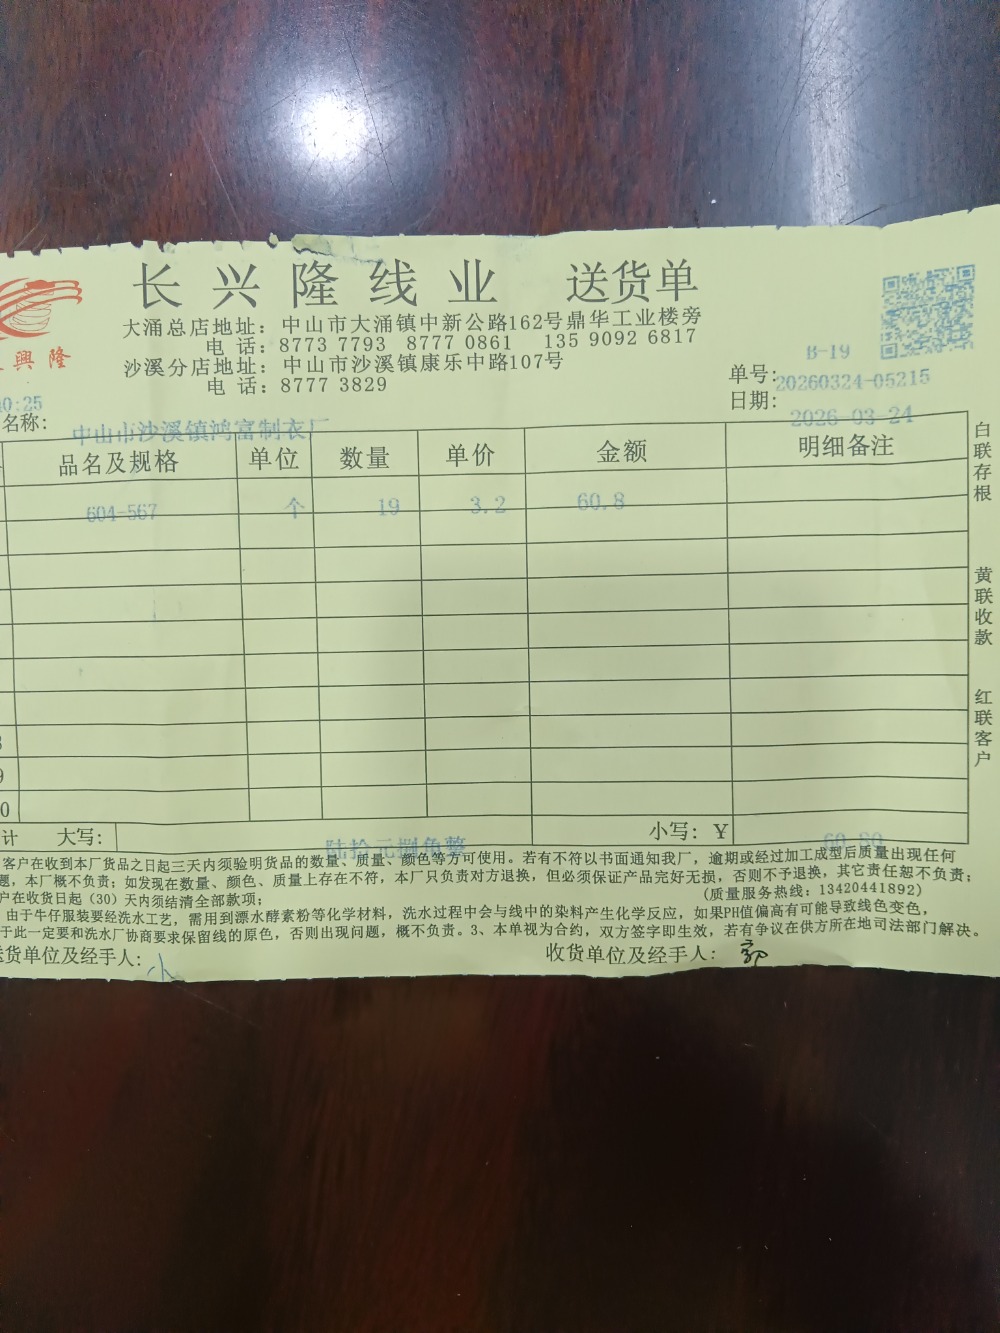 长兴隆线业 送货单
大涌总店地址：中山市大涌镇中新公路162号鼎华工业楼旁
电 话：8773 7793 8777 0861 135 9092 6817
沙溪分店地址：中山市沙溪镇康乐中路107号
电 话：8777 3829
興隆
B-19
单号：20260324-05215
日期：2026-03-24
0:25
名称：中山市沙溪镇鸿富制衣厂
品名及规格 单位 数量 单价 金额 明细备注
604-567 个 19 3.2 60.8
9
0
计 大写：陆拾元捌角整 小写：¥ 60.80
客户在收到本厂货品之日起三天内须验明货品的数量、质量、颜色等方可使用。若有不符以书面通知我厂，逾期或经过加工成型后质量出现任何
题，本厂概不负责；如发现在数量、颜色、质量上存在不符，本厂只负责对方退换，但必须保证产品完好无损，否则不予退换，其它责任恕不负责；
户在收货日起（30）天内须结清全部款项； (质量服务热线：13420441892)
由于牛仔服装要经洗水工艺，需用到漂水酵素粉等化学材料，洗水过程中会与线中的染料产生化学反应，如果PH值偏高有可能导致线色变色，
于此一定要和洗水厂协商要求保留线的原色，否则出现问题，概不负责。3、本单视为合约，双方签字即生效，若有争议在供方所在地司法部门解决。
货单位及经手人： 收货单位及经手人：
白联存根
黄联收款
红联客户